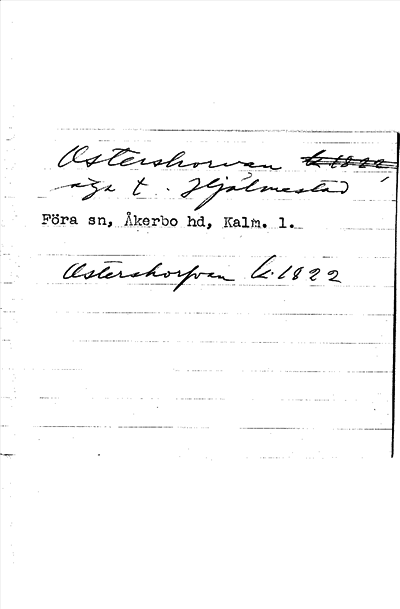 Ostershorvan k 1822
äga t. Hjälmestad
Föra sn, Åkerbo hd, Kalm. l.
Ostershorfvan k. 1822